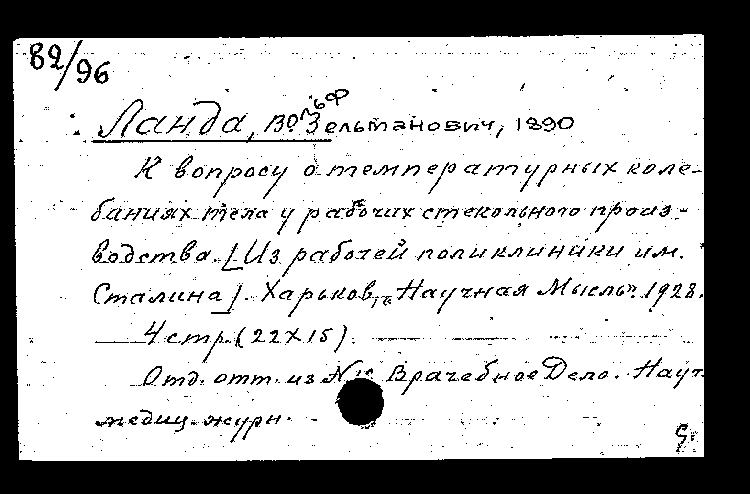 82/96
Ланда, Вольф Зельманович, 1890
К вопросу о температурных коле-
баниях тела у рабочих стекольного произ-
водства. [Из рабочей поликлиники им.
Сталина]. Харьков, "Научная Мысль". 1928.
4 стр. (22х15).
Отд. отт. из № Врачебное Дело. Науч.
медиц. журн.